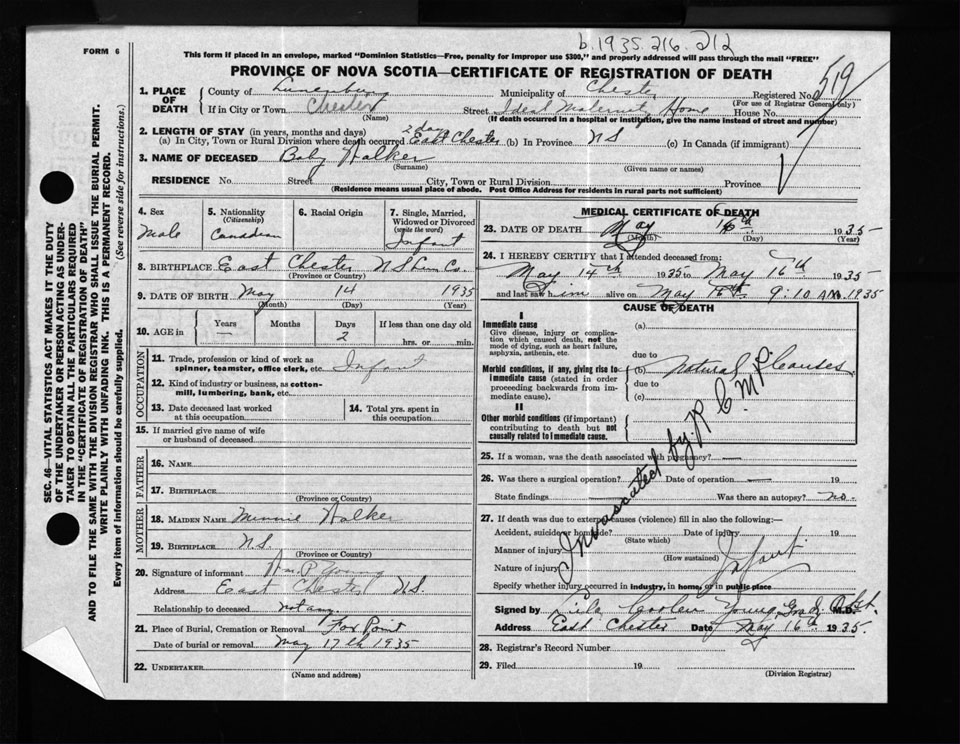 b.1935.216.212
FORM 6
This form if placed in an envelope, marked "Dominion Statistics—Free, penalty for improper use $300," and properly addressed will pass through the mail "FREE"
PROVINCE OF NOVA SCOTIA—CERTIFICATE OF REGISTRATION OF DEATH
519
1. PLACE OF DEATH
County of Lunenburg Municipality of Chester Registered No.
(For use of Registrar General only)
If in City or Town Chester Street Ideal Maternity Home House No.
(Name) (If death occurred in a hospital or institution, give the name instead of street and number)
2. LENGTH OF STAY (in years, months and days) 2 days
(a) In City, Town or Rural Division where death occurred East Chester (b) In Province N S (c) In Canada (if immigrant)
3. NAME OF DECEASED Baby Walker
(Surname) (Given name or names)
RESIDENCE No. Street City, Town or Rural Division Province
(Residence means usual place of abode. Post Office Address for residents in rural parts not sufficient)
4. Sex
Male
5. Nationality
(Citizenship)
Canadian
6. Racial Origin
7. Single, Married, Widowed or Divorced
(write the word)
Infant
8. BIRTHPLACE East Chester N S Lun Co.
(Province or Country)
9. DATE OF BIRTH May 14 1935
(Month) (Day) (Year)
10. AGE in
Years Months Days If less than one day old
— 2 hrs. or min.
OCCUPATION
11. Trade, profession or kind of work as spinner, teamster, office clerk, etc. Infant
12. Kind of industry or business, as cotton-mill, lumbering, bank, etc.
13. Date deceased last worked at this occupation
14. Total yrs. spent in this occupation
15. If married give name of wife or husband of deceased
FATHER
16. NAME
17. BIRTHPLACE
(Province or Country)
MOTHER
18. MAIDEN NAME Minnie Walker
19. BIRTHPLACE N.S.
(Province or Country)
20. Signature of informant Wm P Young
Address East Chester N.S.
Relationship to deceased not any.
21. Place of Burial, Cremation or Removal Fox Point
Date of burial or removal May 17th 1935
22. UNDERTAKER
(Name and address)
MEDICAL CERTIFICATE OF DEATH
23. DATE OF DEATH May 16th 1935
(Month) (Day) (Year)
24. I HEREBY CERTIFY that I attended deceased from:
May 14th 1935 to May 16th 1935
and last saw him alive on May 9:10 AM. 1935
CAUSE OF DEATH
I
Immediate cause
Give disease, injury or complication which caused death, not the mode of dying, such as heart failure, asphyxia, asthenia, etc.
(a)
due to
Morbid conditions, if any, giving rise to immediate cause (stated in order proceeding backwards from immediate cause).
(b) Natural Causes
due to
(c)
II
Other morbid conditions (if important) contributing to death but not causally related to immediate cause.
25. If a woman, was the death associated with pregnancy? —
26. Was there a surgical operation? — Date of operation — 19
State findings Was there an autopsy? no.
27. If death was due to external causes (violence) fill in also the following:—
Accident, suicide or homicide? Date of injury 19
(State which)
Manner of injury
(How sustained)
Nature of injury Infant
Specify whether injury occurred in industry, in home, or in public place
by R C M P
Signed by Lila Coolen Young M.D.
Address East Chester Date May 16th 1935.
28. Registrar's Record Number
29. Filed 19
(Division Registrar)
SEC. 46—VITAL STATISTICS ACT MAKES IT THE DUTY
OF THE UNDERTAKER OR PERSON ACTING AS UNDER-
TAKER TO OBTAIN ALL THE PARTICULARS REQUIRED
IN THE "CERTIFICATE OF REGISTRATION OF DEATH"
AND TO FILE THE SAME WITH THE DIVISION REGISTRAR WHO SHALL ISSUE THE BURIAL PERMIT.
WRITE PLAINLY WITH UNFADING INK. THIS IS A PERMANENT RECORD.
Every item of information should be carefully supplied. (See reverse side for instructions.)